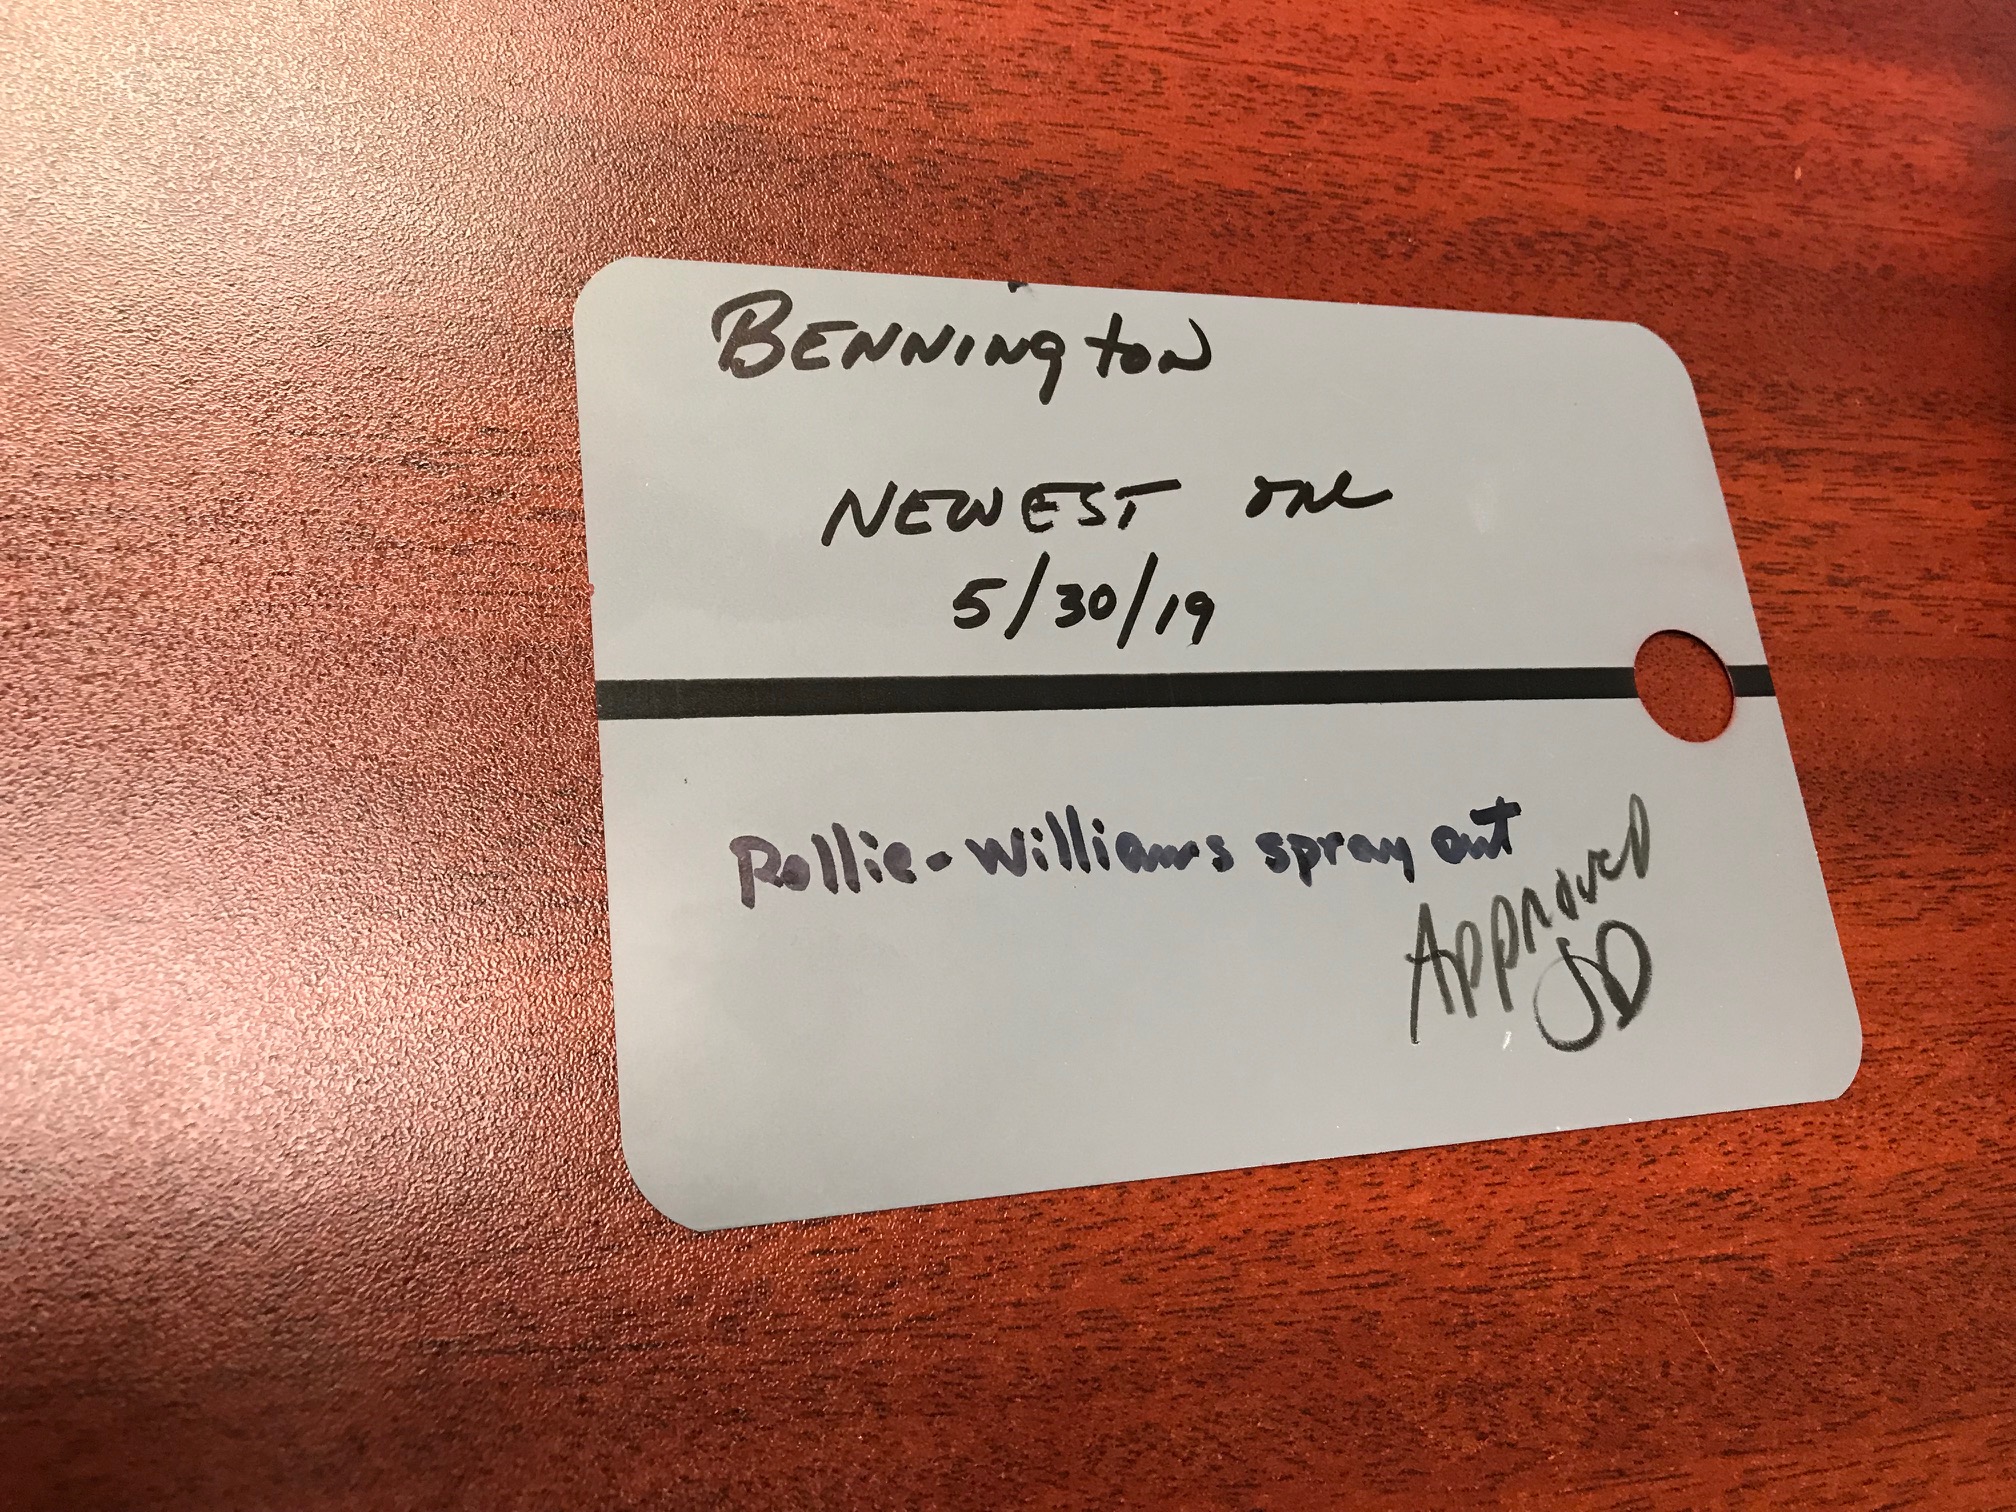 BENNINgtoN
NEWEST
5/30/19
Rollie-Williams spray out
Approved
JD